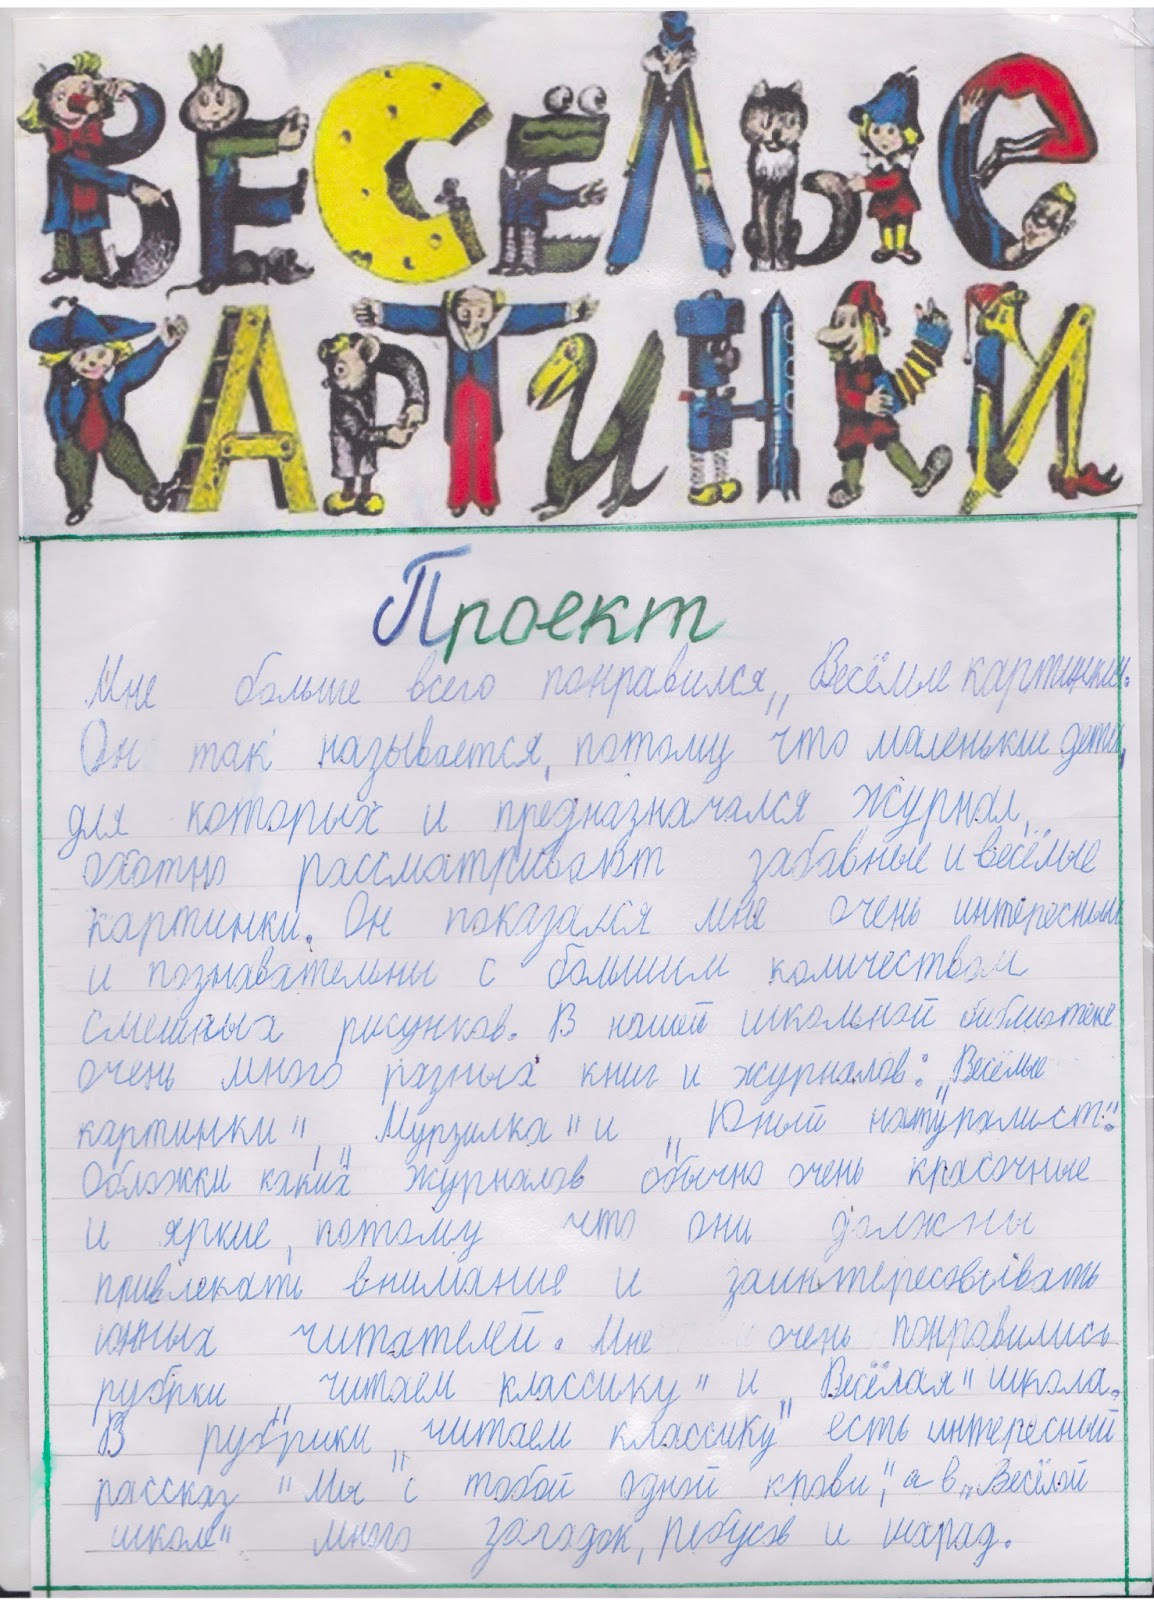 ВЕСЁЛЫЕ
КАРТИНКИ
Проект
Мне больше всего понравился „Весёлые картинки.
Он так называется, потому что маленькие дети,
для которых и предназначался журнал,
охотно рассматривают забавные и весёлые
картинки. Он показался мне очень интересным
и познавательны с большим количеством
смешных рисунков. В нашей школьной библиотеке
очень много разных книг и журналов: „Весёлые
картинки", „Мурзилка" и „Юный натуралист".
Обложки таких журналов обычно очень красочные
и яркие, потому что они должны
привлекать внимание и заинтересовывать
юных читателей. Мне очень понравились
рубрки „читаем классику" и „Весёлая" школа.
В рубрики „читаем классику" есть интересный
рассказ "Мы с тобой одной крови", а в „Весёлой
школе" много загадок, ребусов и шарад.